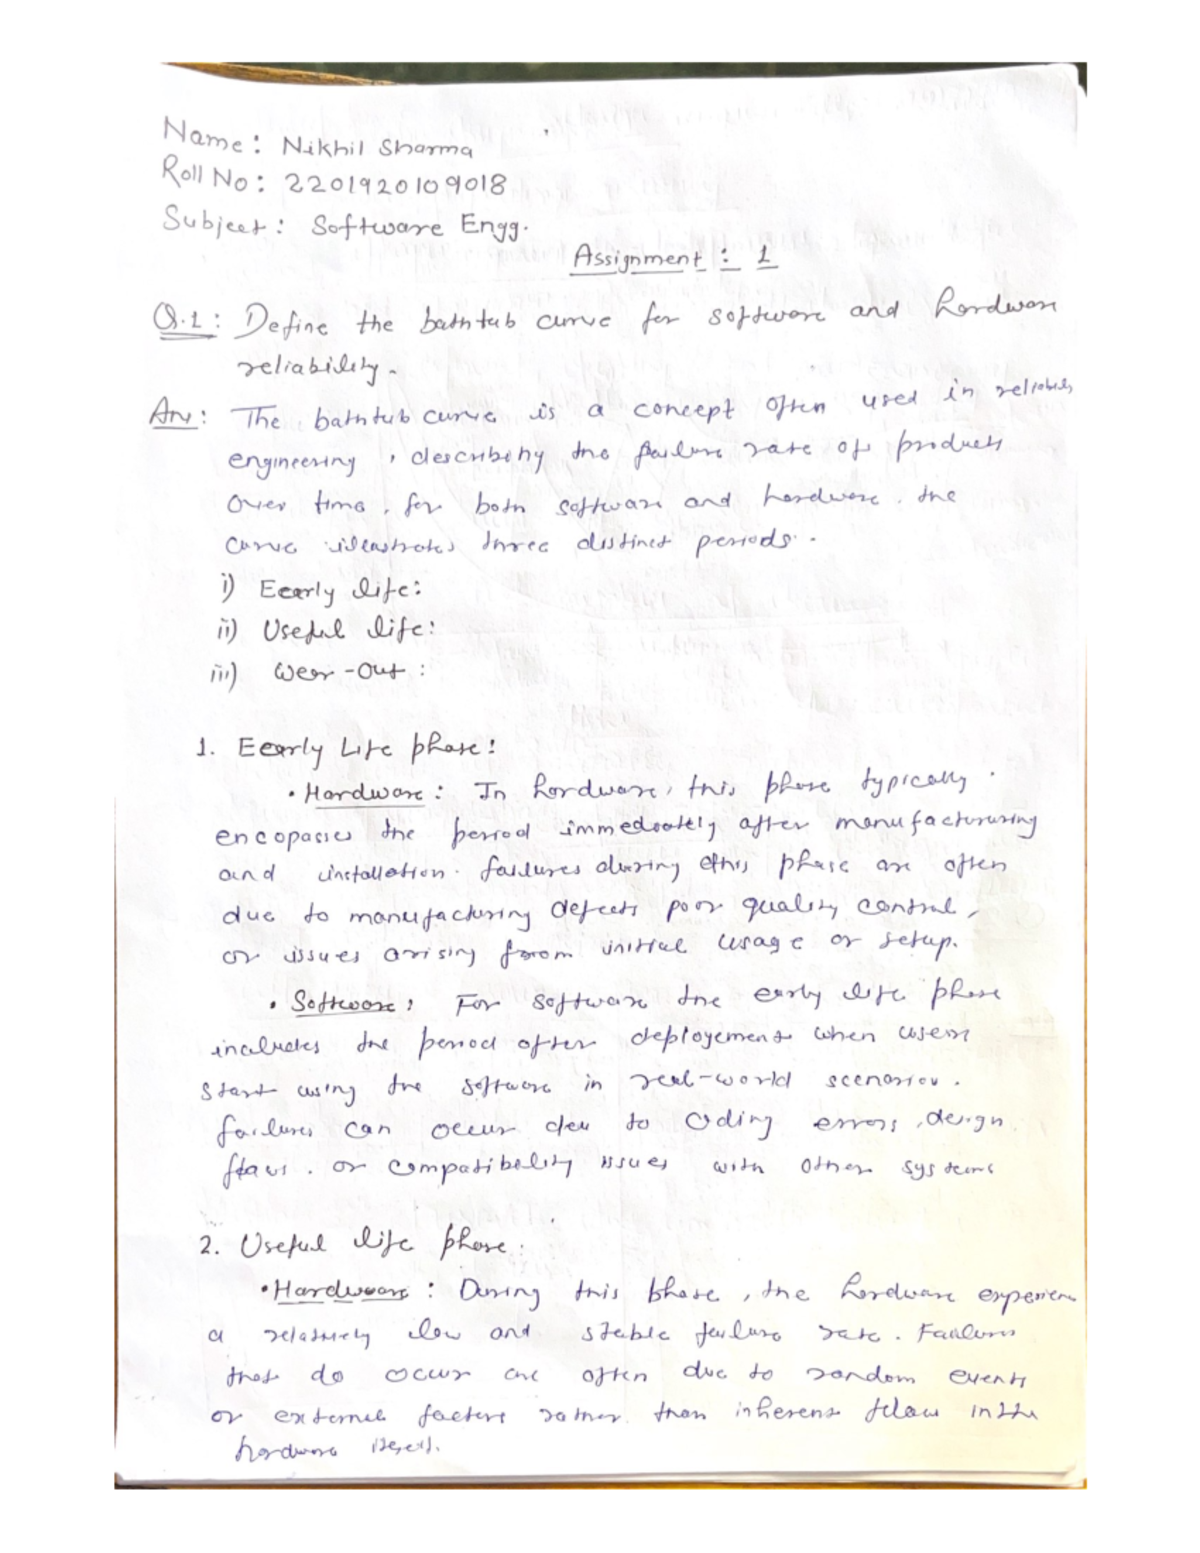 Name: Nikhil Sharma
Roll No: 2201920109018
Subject: Software Engg.
Assignment: 1
Q.1: Define the bathtub curve for software and hardware
reliability.
Ans: The bathtub curve is a concept often used in reliability
engineering, describing the failure rate of products
over time. for both software and hardware. the
curve illustrates three distinct periods.
i) Eearly life:
ii) Useful life:
iii) Wear-Out:
1. Eearly Life phase:
• Hardware: In hardware, this phase typically
encopasses the period immediately after manufactururing
and installation. failures during this phase are often
due to manufacturing defects poor quality control,
or issues arising from initial usage or setup.
• Software: For software the early life phase
includes the period after deployement when users
start using the software in real-world scenarios.
failures can occur due to coding errors, design
flaws. or compatibility issues with other systems
2. Useful life phase.
• Hardware: During this phase, the hardware experien
a relatively low and stable failure rate. Failures
that do occur are often due to random events
or external factors rather than inherent flaw in the
hardware itself.